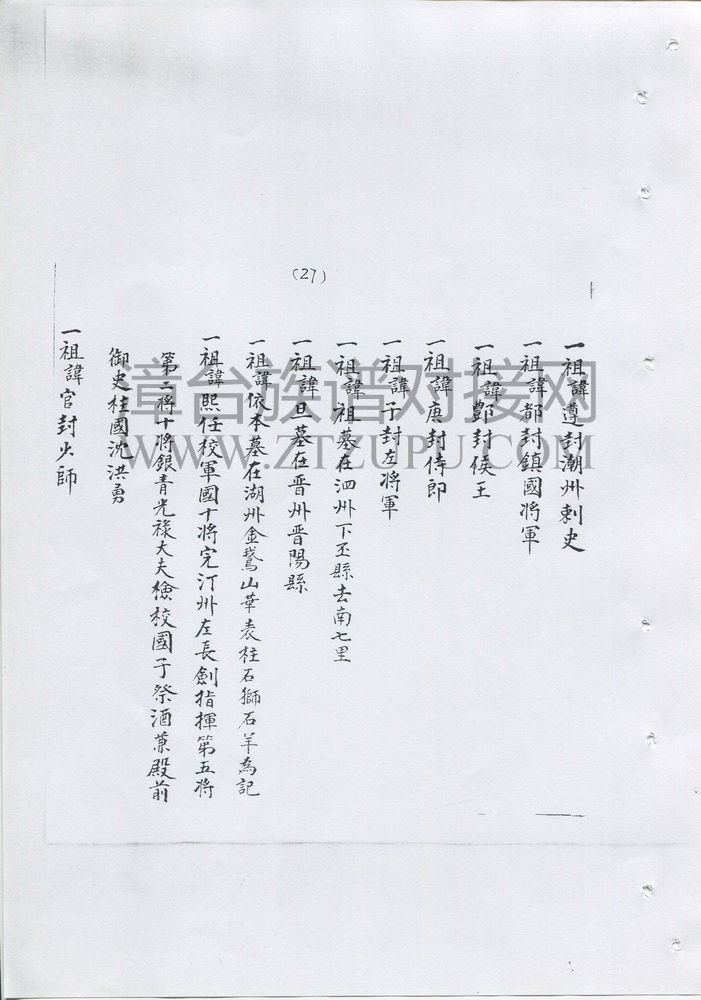 (27)
一祖諱遵封潮州刺史
一祖諱都封鎮國將軍
一祖諱鄷封侯王
一祖諱庚封侍郎
一祖諱于封左將軍
一祖諱祖墓在泗州下丕縣去南七里
一祖諱旦墓在晋州晋陽縣
一祖諱依本墓在湖州金鵞山華表柱石獅石羊為記
一祖諱熙任校軍國十将完汀州左長劍指揮第五将
第二将十将銀青光祿大夫檢校國子祭酒兼殿前
御史柱國沈洪勇
一祖諱官封火師
漳台族谱对接网
WWW.ZTZUPU.COM